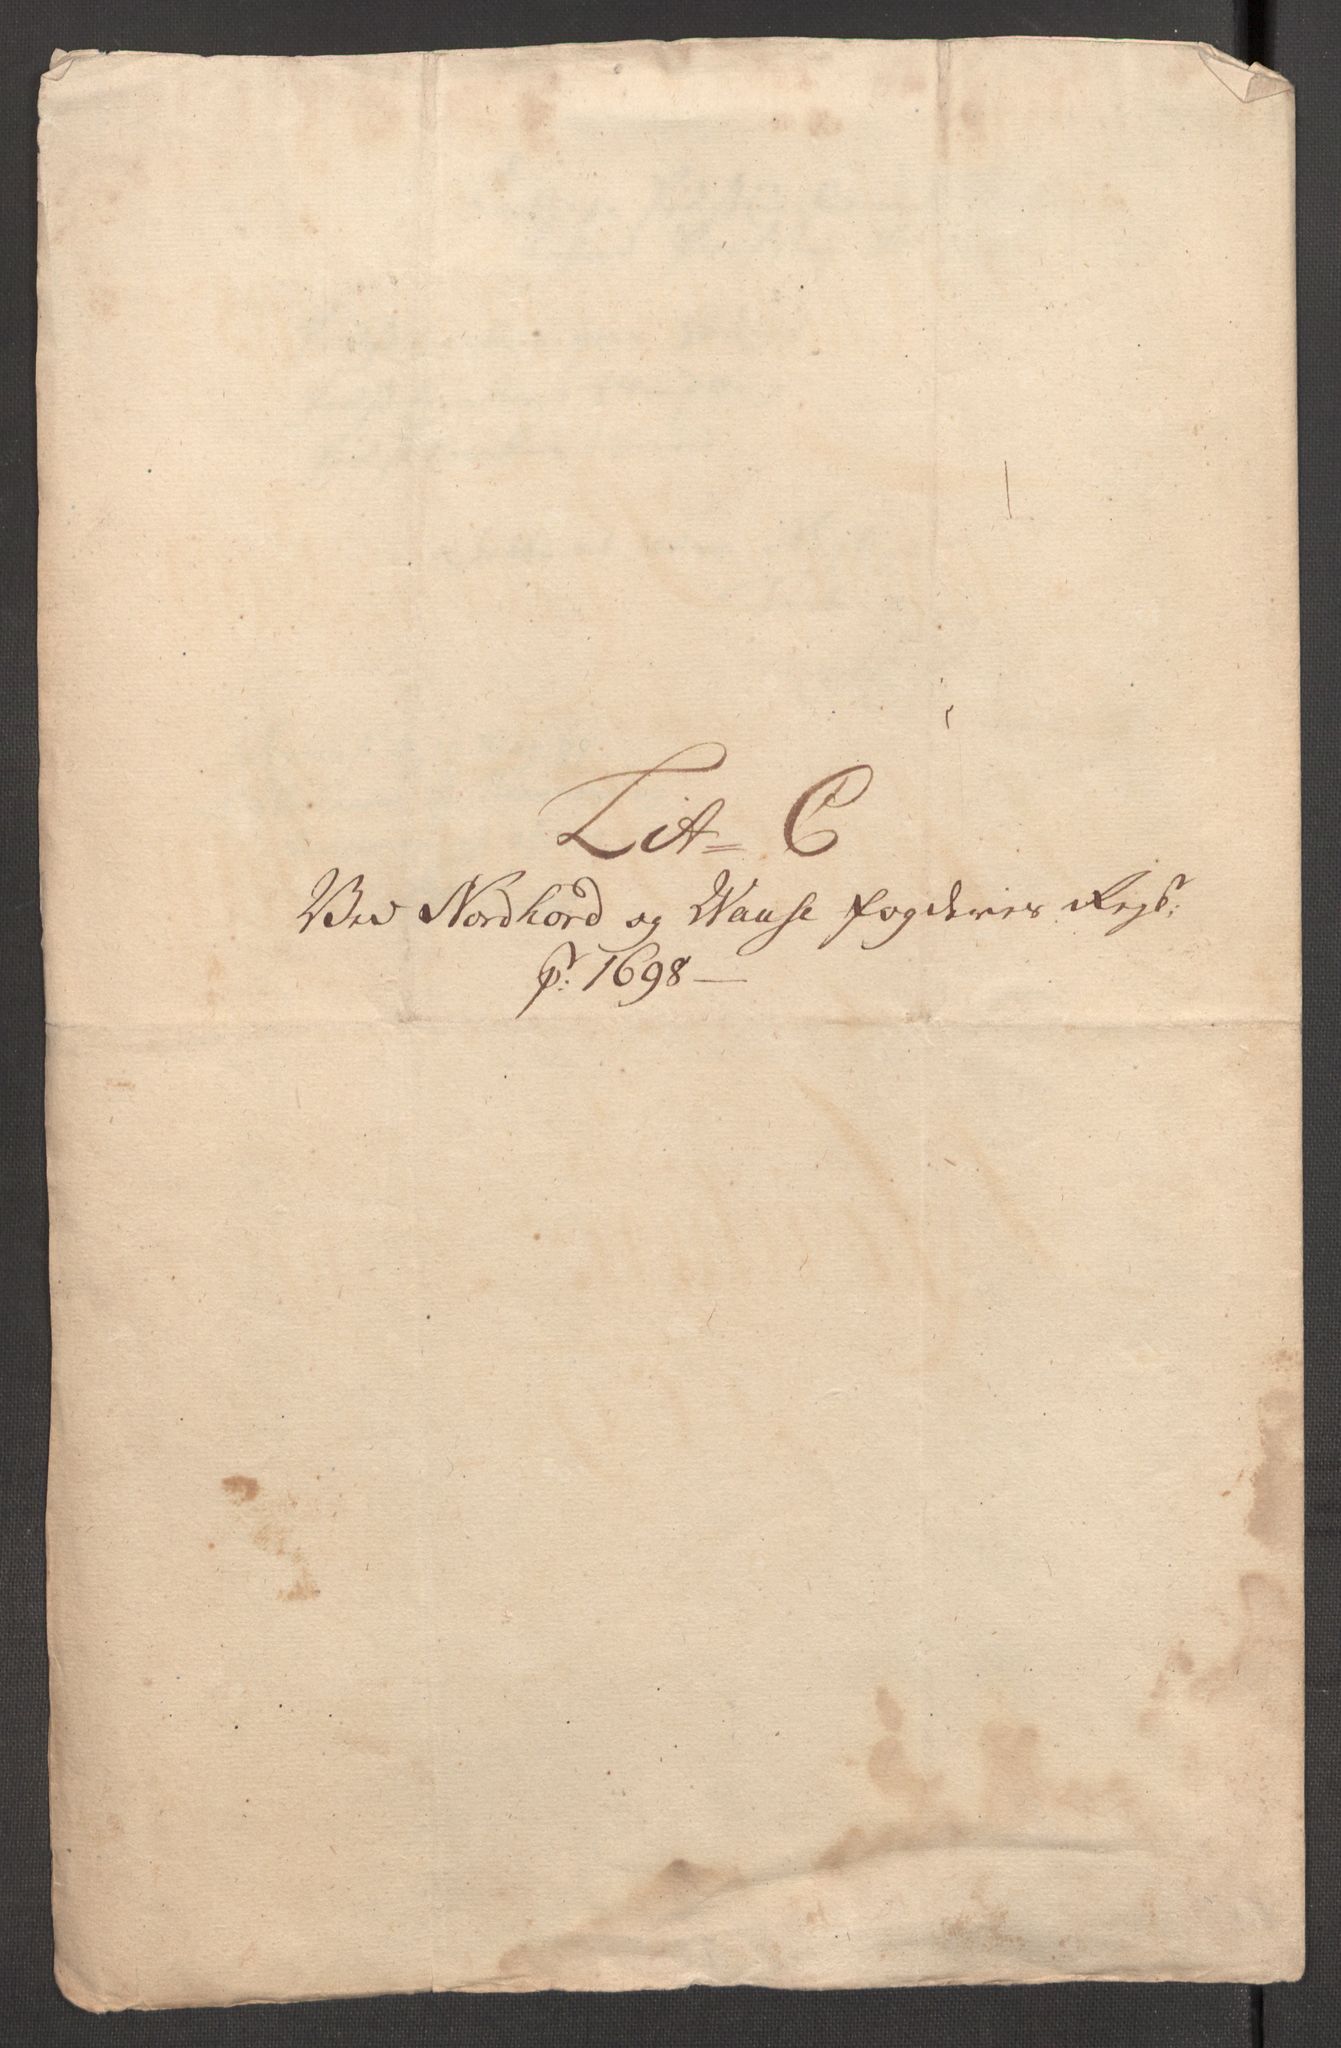 Lit= C
Ved Nordhord og Waase fogderies Regb:
p: 1698 —